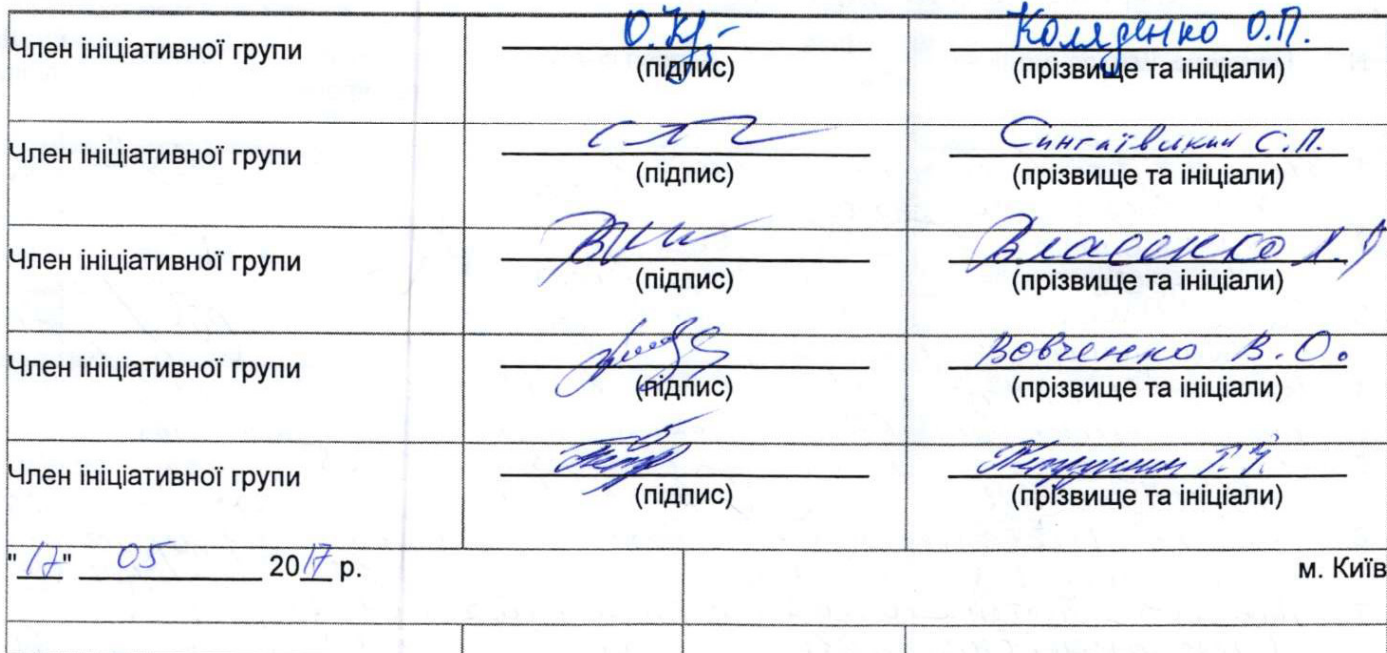 Член ініціативної групи О.К Коляденко О.П.
(підпис) (прізвище та ініціали)
Член ініціативної групи С.П.
(підпис) (прізвище та ініціали)
Член ініціативної групи Власенко
(підпис) (прізвище та ініціали)
Член ініціативної групи Вовченко В.О.
(підпис) (прізвище та ініціали)
Член ініціативної групи
(підпис) (прізвище та ініціали)
"17" 05 2017 р. м. Київ